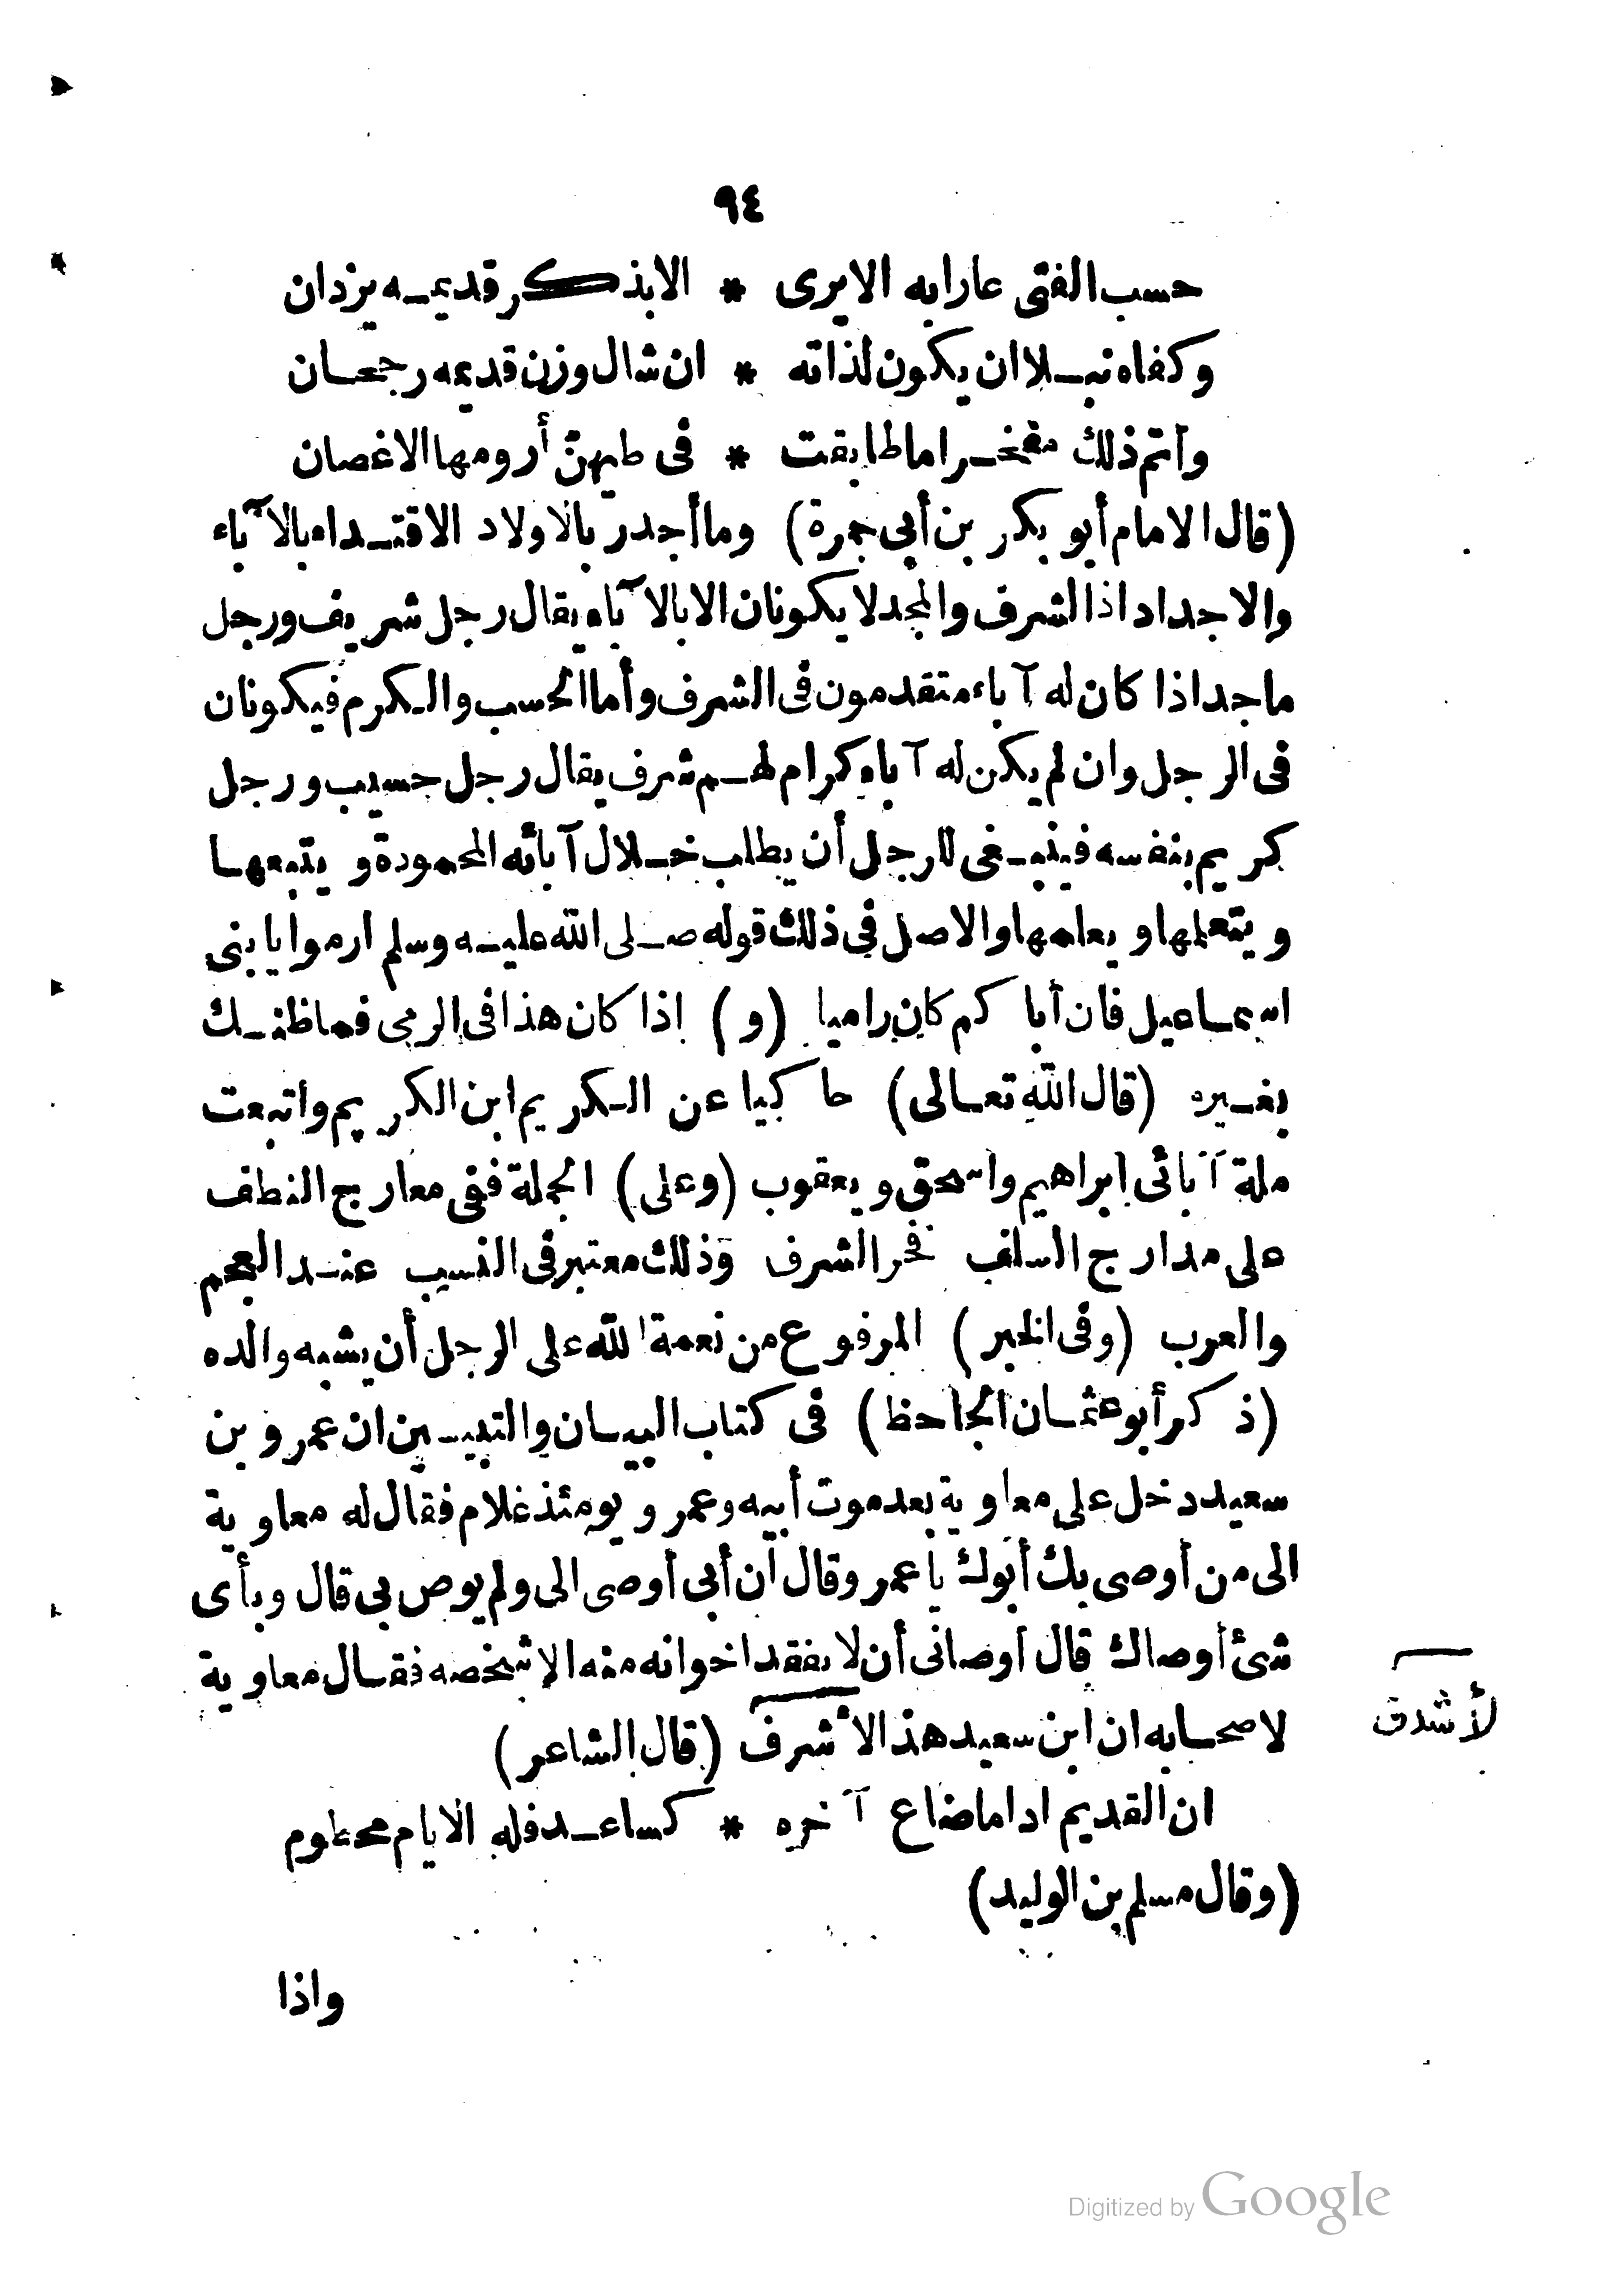 ٩٤
حسب الفتى عارا به الا يرى * الا بذكر قديمه يزدان
وكفاه نبلا ان يكون لذاته * ان شال وزن قديمه رجحان
وأتم ذلك مفخرا ما طابقت * فى طيهن أرومها الاغصان
(قال الامام أبو بكر بن أبى جمرة) وما أجدر بالاولاد الاقتداء بالآباء
والاجداد اذا الشرف والمجد لا يكونان الا بالآباء يقال رجل شريف ورجل
ماجد اذا كان له آباء متقدمون فى الشرف وأما الحسب والكرم فيكونان
فى الرجل وان لم يكن له آباء كرام لهم شرف يقال رجل حسيب ورجل
كريم بنفسه فينبغى للرجل أن يطلب خلال آبائه المحمودة ويتبعها
ويتعلمها ويعلمها والاصل فى ذلك قوله صلى الله عليه وسلم ارموا يا بنى
اسماعيل فان أباكم كان راميا (و) إذا كان هذا فى الرمى فما ظنك
بغيره (قال الله تعالى) حاكيا عن الكريم ابن الكريم واتبعت
ملة آبائى إبراهيم واسحق ويعقوب (وعلى) الجملة ففى معارج النطف
على مدارج السلف فخر الشرف وذلك معتبر فى النسب عند العجم
والعرب (وفى الخبر) المرفوع من نعمة الله على الرجل أن يشبه والده
(ذكر أبو عثمان الجاحظ) فى كتاب البيان والتبيين ان عمرو بن
سعيد دخل على معاوية بعد موت أبيه وعمرو يومئذ غلام فقال له معاوية
الى من أوصى بك أبوك يا عمرو قال ان أبى أوصى الى ولم يوص بى قال وبأى
شئ أوصاك قال أوصانى أن لا يفقد اخوانه منه الا شخصه فقال معاوية
لاصحابه ان ابن سعيد هذ الأشرف (قال الشاعر)
لأشدق
ان القديم اداما ضاع آخره * كساعد فله الايام محطوم
(وقال مسلم بن الوليد)
واذا
Digitized by Google